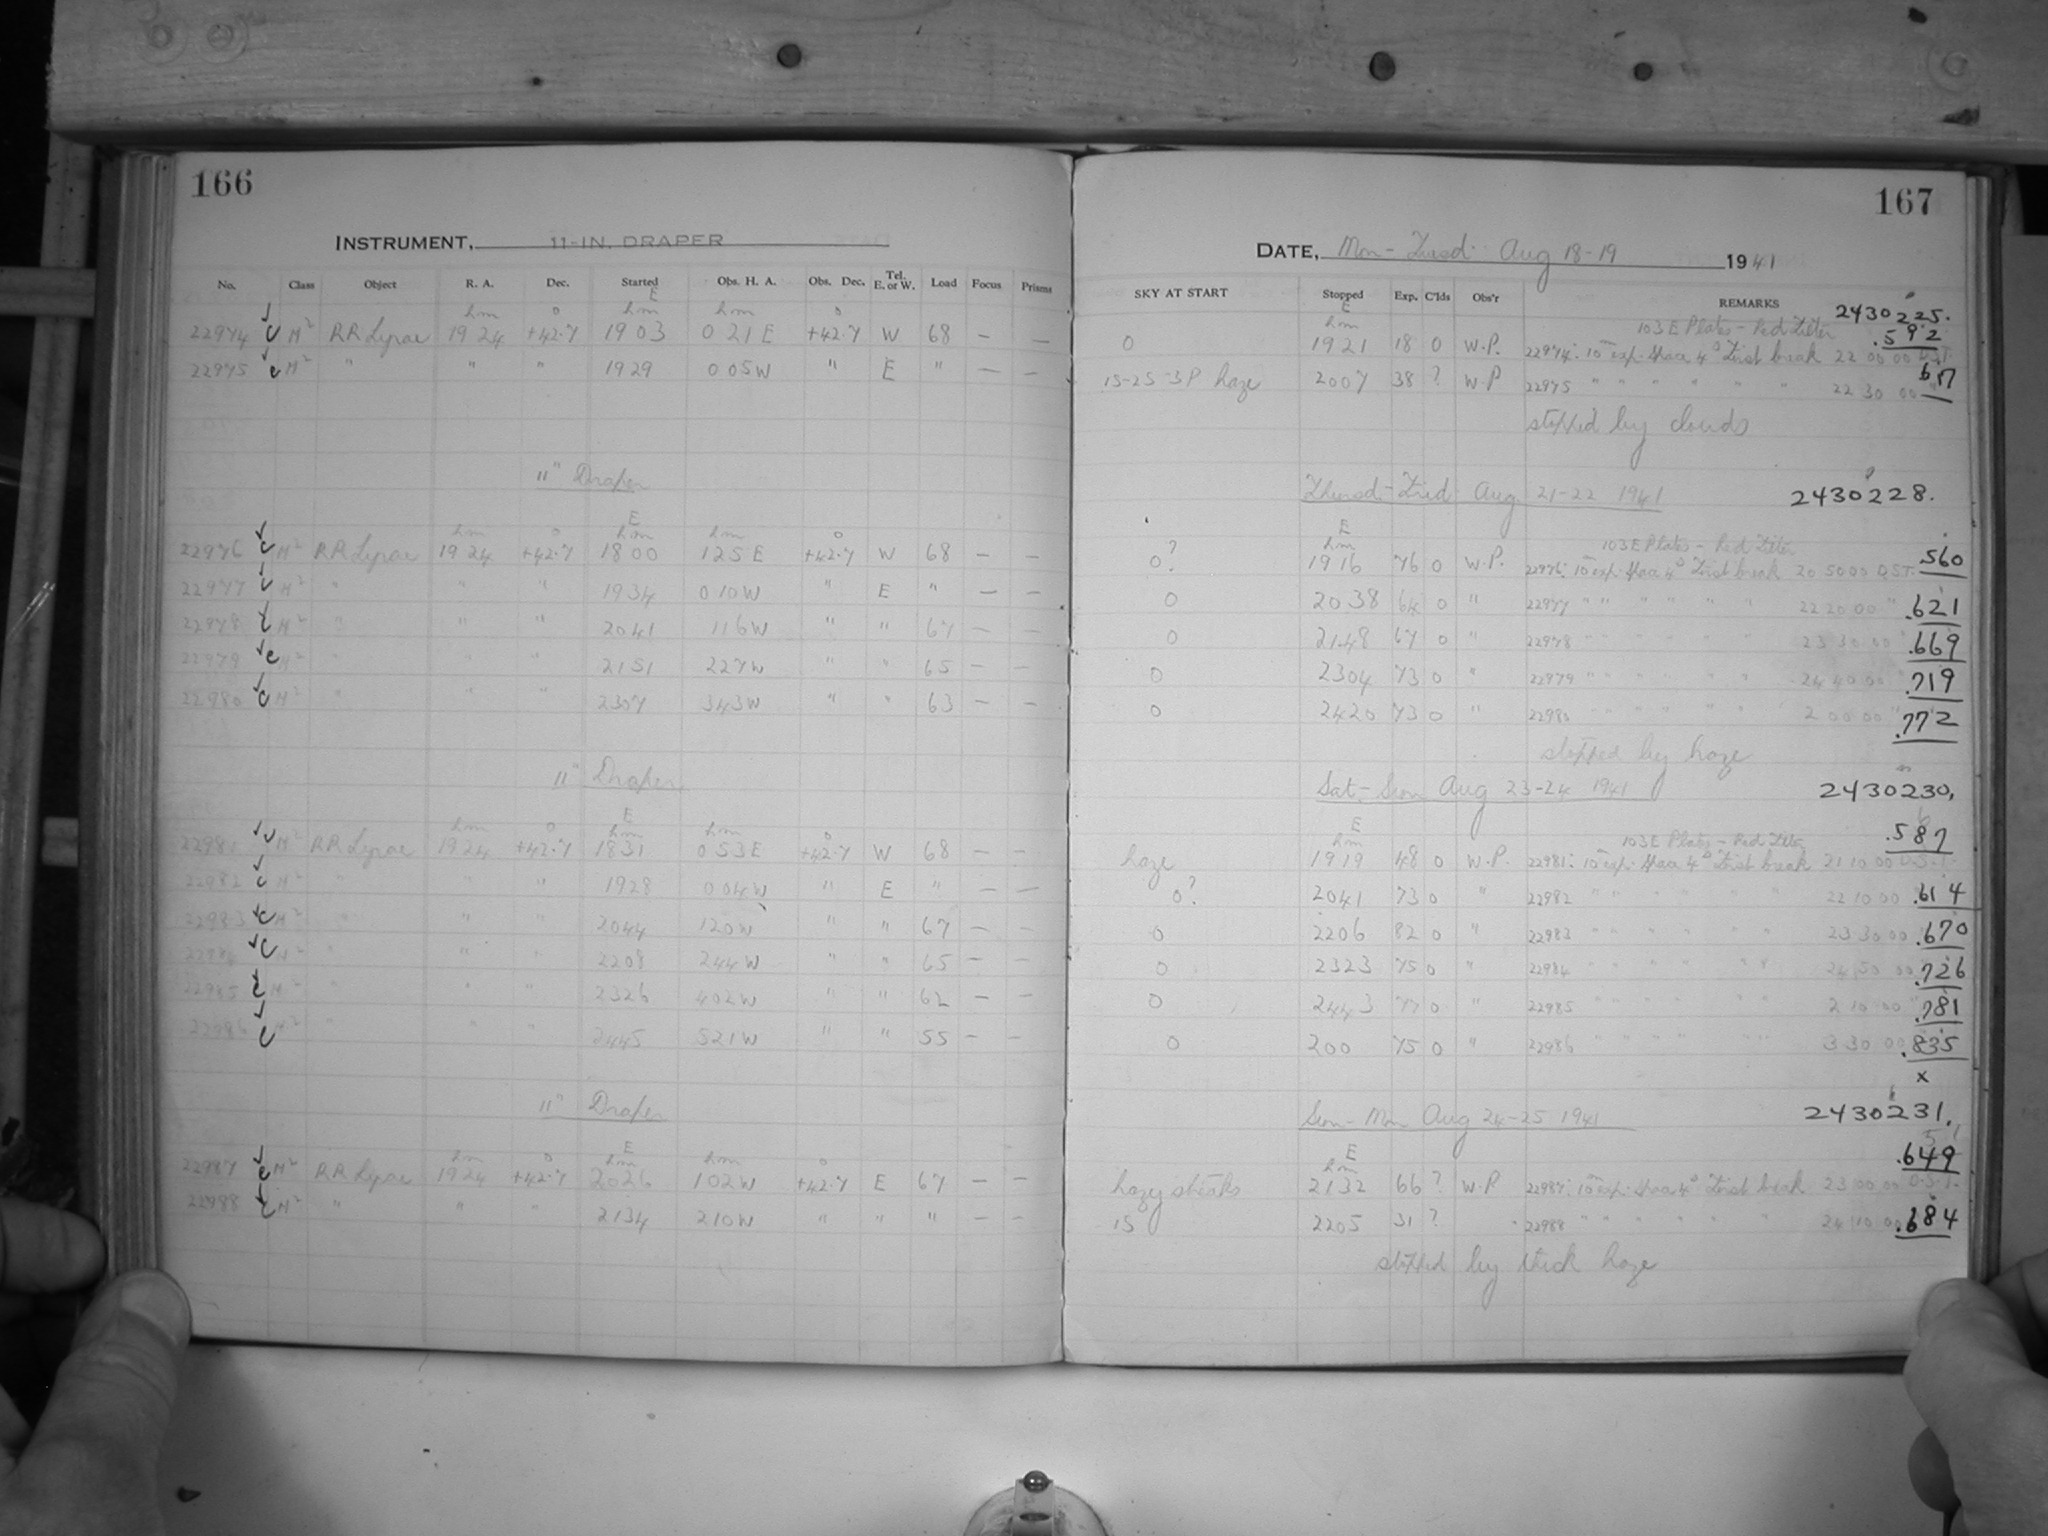 166
INSTRUMENT, 11-IN. DRAPER
No. Class Object R. A. Dec. Started Obs. H. A. Obs. Dec. Tel. E. or W. Load Focus Prisms
h m o E h m h m o
22974 M² RR Lyrae 19 24 +42.7 19 03 0 21 E +42.7 W 68 –
22975 M² " " " 19 29 0 05 W " E " – –
11" Draper
E
h m o h m h m o
22976 M² RR Lyrae 19 24 +42.7 18 00 1 25 E +42.7 W 68 – –
22977 M² " " " 19 34 0 10 W " E " – –
22978 M² " " " 20 41 1 16 W " " 67 – –
22979 M² " " " 21 51 2 27 W " " 65 – –
22980 M² " " " 23 07 3 43 W " " 63 – –
11" Draper
E
h m o h m h m o
22981 M² RR Lyrae 19 24 +42.7 18 31 0 53 E +42.7 W 68 – –
22982 M² " " " 19 28 0 04 W " E " – –
22983 M² " " " 20 44 1 20 W " " 67 – –
22984 M² " " " 22 08 2 44 W " " 65 – –
22985 M² " " " 23 26 4 02 W " " 62 – –
22986 M² " " " 24 45 5 21 W " " 55 – –
11" Draper
E
h m o h m h m o
22987 M² RR Lyrae 19 24 +42.7 20 26 1 02 W +42.7 E 67 – –
22988 M² " " " 21 34 2 10 W " " " – –
167
DATE, Mon – Tuesd. Aug 18-19 1941
SKY AT START Stopped Exp. C'lds Obs'r REMARKS
2430225.
E
h m 103 E Plates – Red Filter .592
0 19 21 18 0 W.P. 22974: 10ᵐ exp. Space 4ˢ First break 22 00 00 D.S.T.
15-25-3P haze 20 07 38 ? W.P 22975 " " " " " " 22 30 00 .617
stopped by clouds
Thursd – Frid. Aug 21-22 1941 2430228.
E
h m 103 E Plates – Red Filter
0? 19 16 76 0 W.P. 22976: 10ᵐ exp. Space 4ˢ First break 20 50 00 D.S.T. .560
0 20 38 64 0 " 22977 " " " " " " 22 20 00 " .621
0 21 48 67 0 " 22978 " " " " " " 23 30 00 " .669
0 23 04 73 0 " 22979 " " " " " " 24 40 00 " .719
0 24 20 73 0 " 22980 " " " " " " 2 00 00 " .772
stopped by haze
Sat – Sun Aug 23-24 1941 2430230.
E
h m 103 E Plates – Red Filter .587
haze 19 19 48 0 W.P. 22981: 10ᵐ exp. Space 4ˢ First break 21 10 00 D.S.T.
0? 20 41 73 0 " 22982 " " " " " 22 10 00 .614
0 22 06 82 0 " 22983 " " " " " 23 30 00 .670
0 23 23 75 0 " 22984 " " " " " 24 50 00 .726
0 24 43 77 0 " 22985 " " " " " 2 10 00 .781
0 2 00 75 0 " 22986 " " " " " 3 30 00 .835
x
Sun – Mon Aug 24-25 1941 2430231.
E
h m .649
hazy streaks 21 32 66 ? W.P 22987: 10ᵐ exp. Space 4ˢ First break 23 00 00 D.S.T.
15 22 05 31 ? " 22988 " " " " " 24 10 00 .684
stopped by thick haze